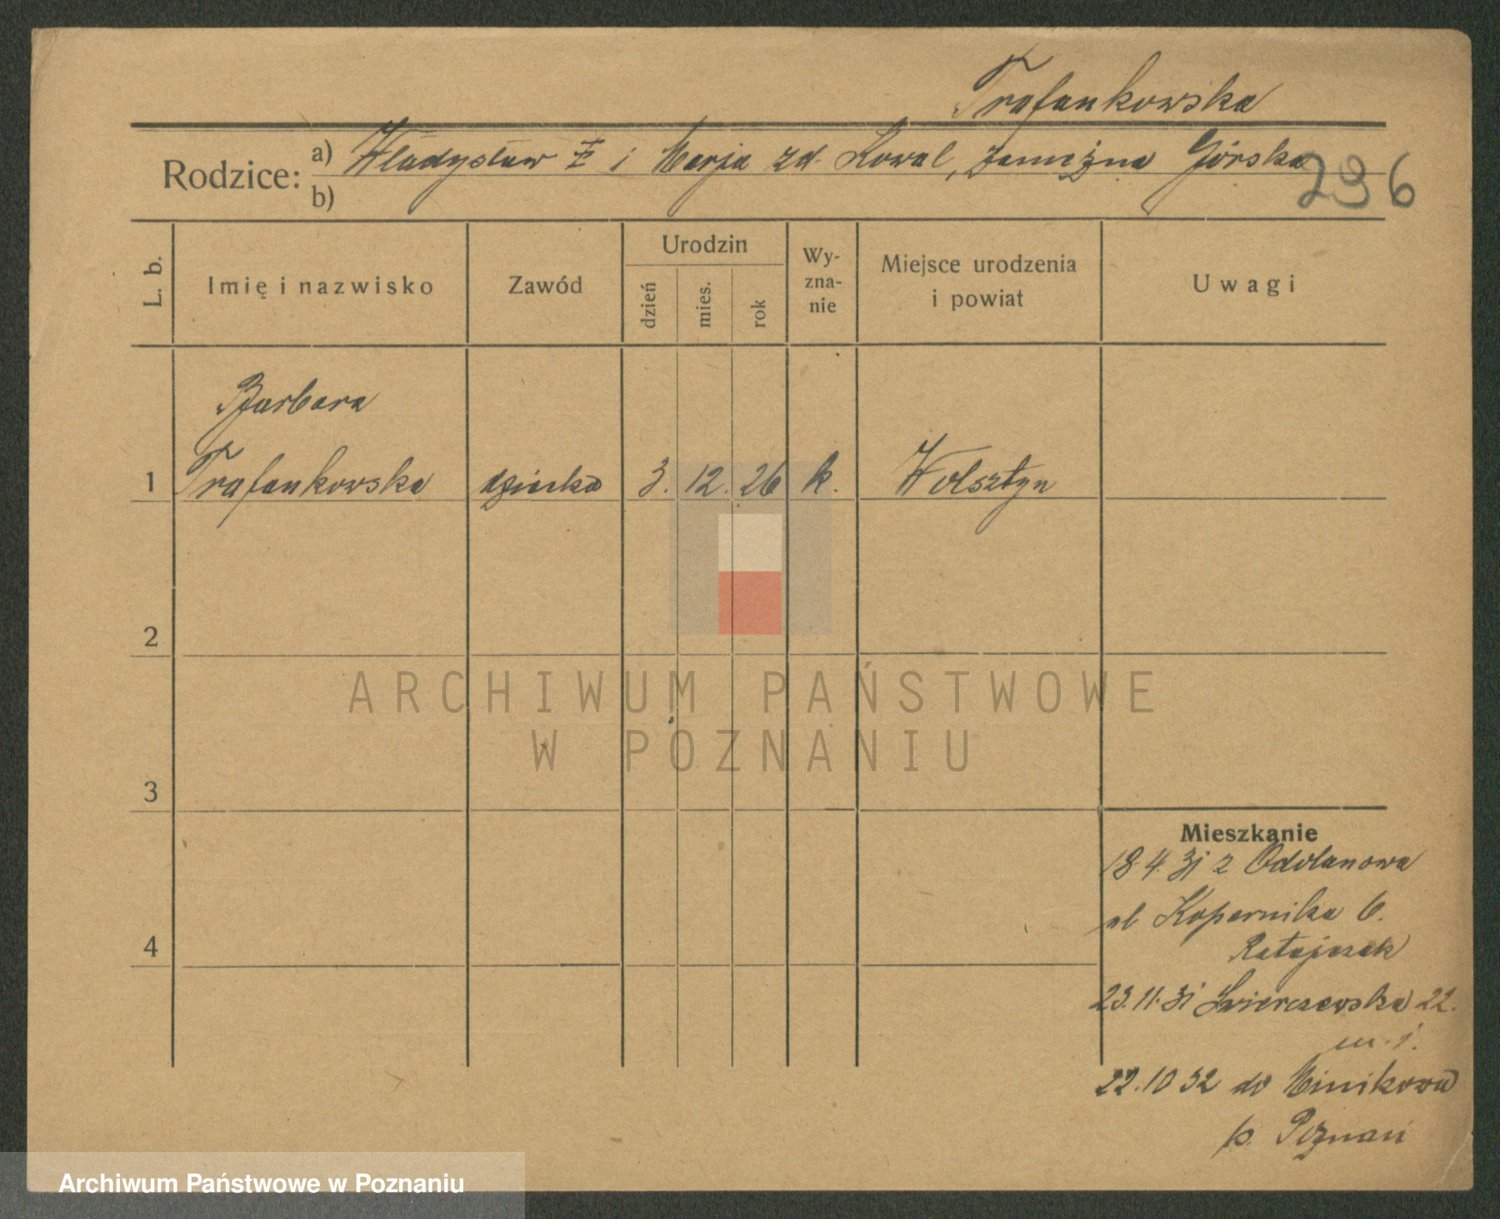 Trafankowska
Rodzice: a) Władysław ‡ i Marja zd. Kowal, zamężna Górska
b)
296
L. b. Imię i nazwisko Zawód Urodzin dzień mies. rok Wy-zna-nie Miejsce urodzenia i powiat Uwagi
Barbara
1 Trafankowska dziecko 3. 12. 26 k. Wolsztyn
2
ARCHIWUM PAŃSTWOWE
W POZNANIU
3
Mieszkanie
18.4.31 z Odolanowa
ul Kopernika 6.
Ratajczak
4
23.11.31 Świerczewska 22.
m. 1.
22.10 32 do Minikowa
p. Poznań
Archiwum Państwowe w Poznaniu